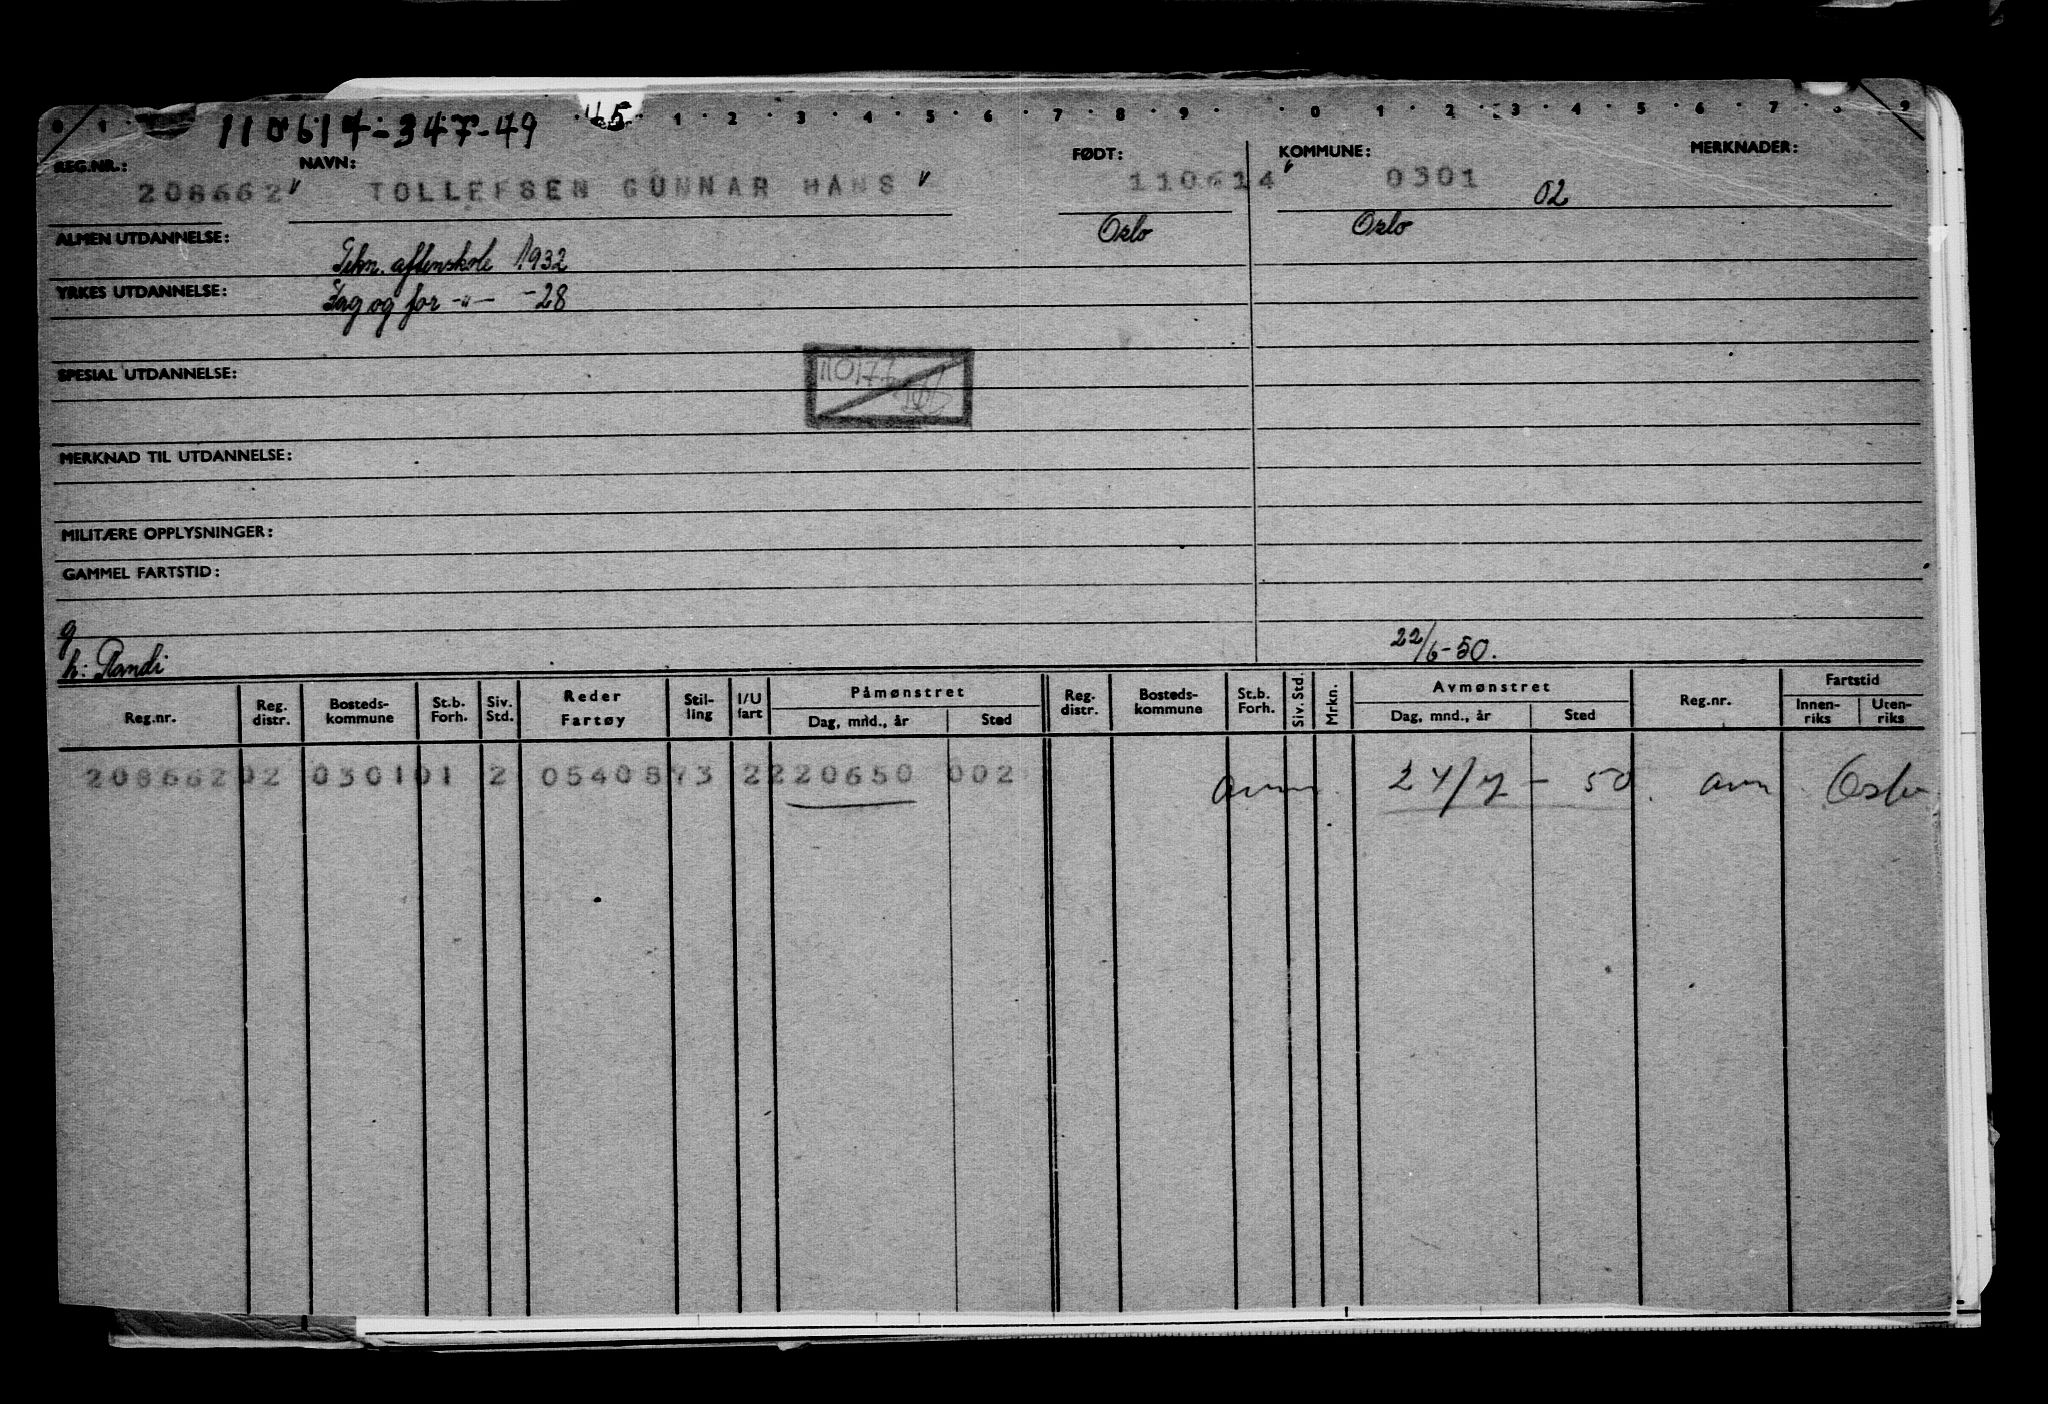 0 1 1 2 3 4 5 6 7 8 9 0 1 2 3 4 5 6 7 8 9
110614-347-49 45
REG.NR.: NAVN: FØDT: KOMMUNE: MERKNADER:
208662 TOLLEFSEN GUNNAR HANS 110614 0301 02
ALMEN UTDANNELSE: Oslo Oslo
Tekn. aftenskole 1932
YRKES UTDANNELSE: Fag og for -"- -28
SPESIAL UTDANNELSE: 110177
MERKNAD TIL UTDANNELSE:
MILITÆRE OPPLYSNINGER:
GAMMEL FARTSTID:
g
h: Randi 22/6-50.
Reg.nr. Reg. distr. Bosteds-kommune St.b. Forh. Siv. Std. Reder Fartøy Stil-ling I/U fart Påmønstret Dag, mnd., år Sted Reg. distr. Bosteds-kommune St.b. Forh. Siv. Std. Mrkn. Avmønstret Dag, mnd., år Sted Reg.nr. Fartstid Innen-riks Uten-riks
208662 02 0301 01 2 05408 73 2 220650 002 24/7-50 Oslo